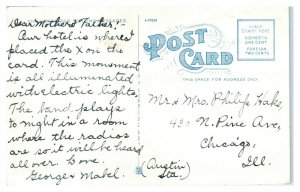 Dear Mother & Father:
Our hotel is where I
placed the X on the
card. This monument
is all illuminated
with electric lights.
The band plays
to night in a room
where the radios
are so it will be heard
all over. Love.
George & Mabel.
POST
CARD
THIS SPACE FOR ADDRESS ONLY
PLACE
STAMP HERE
DOMESTIC
ONE CENT
FOREIGN
TWO CENTS
Mr. & Mrs. Philip Hake,
N. Pine Ave,
Chicago,
Ill.
(Austin
Sta.)